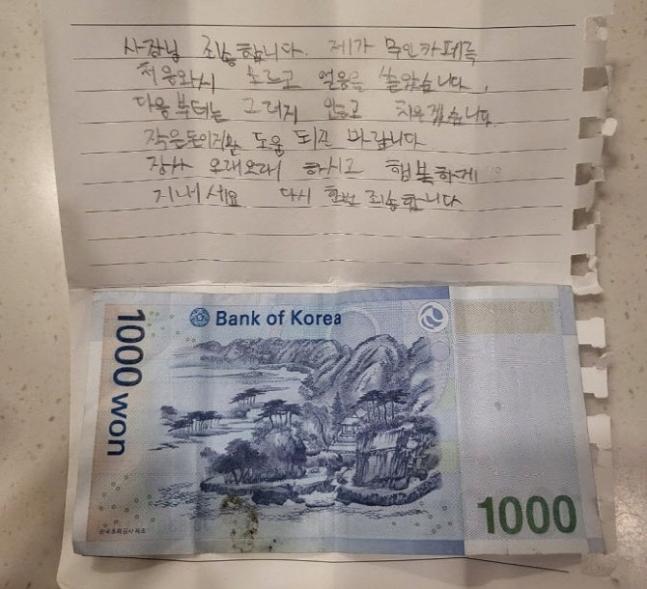 사장님 죄송합니다. 제가 무인카페를
처음와서 모르고 얼음을 쏟았습니다.
다음부터는 그러지 않고 치우겠습니다.
작은돈이지만 도움 되길 바랍니다
장사 오래오래 하시고 행복하게
지내세요 다시 한번 죄송합니다
Bank of Korea
1000 won
1000
한국조폐공사 제조